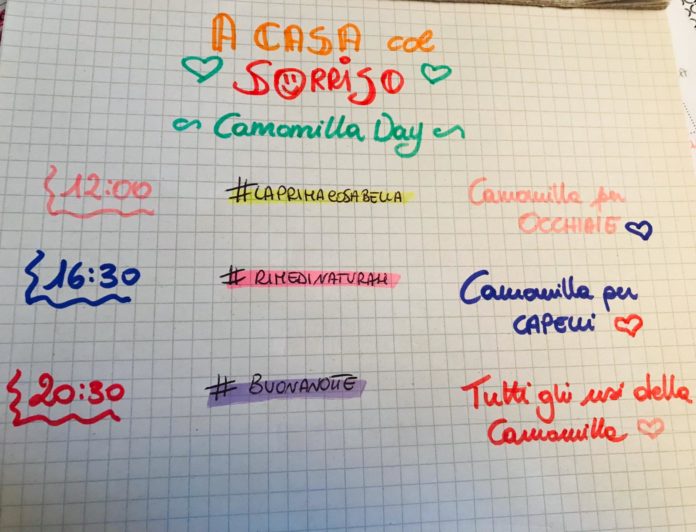 A CASA col
SORRISO
Camomilla Day
12:00 #LAPRIMACOSABELLA Camomilla per
OCCHIAIE
16:30 #RIMEDINATURALI Camomilla per
CAPELLI
20:30 # BUONANOTTE Tutti gli usi della
Camomilla